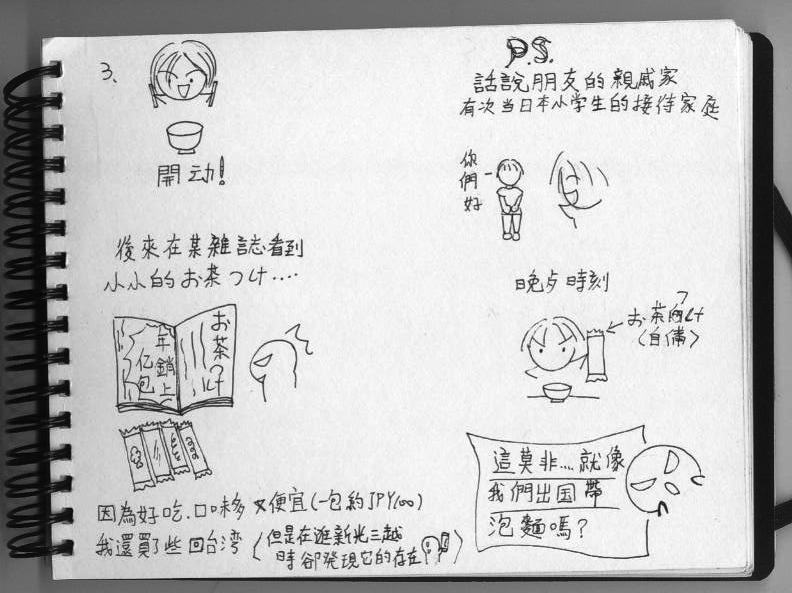 3、
開动!
後來在某雜誌看到
小小的お茶づけ....
お茶づけ
年銷上
亿包
因為好吃.口味多又便宜(一包約JPY100)
我還買了些回台湾(但是在逛新光三越
時卻發現它的存在)
P.S.
話說朋友的親戚家
有次当日本小学生的接待家庭
你們好
晚歺時刻
お茶づけ
(自備)
這莫非....就像
我們出国帶
泡麵嗎?